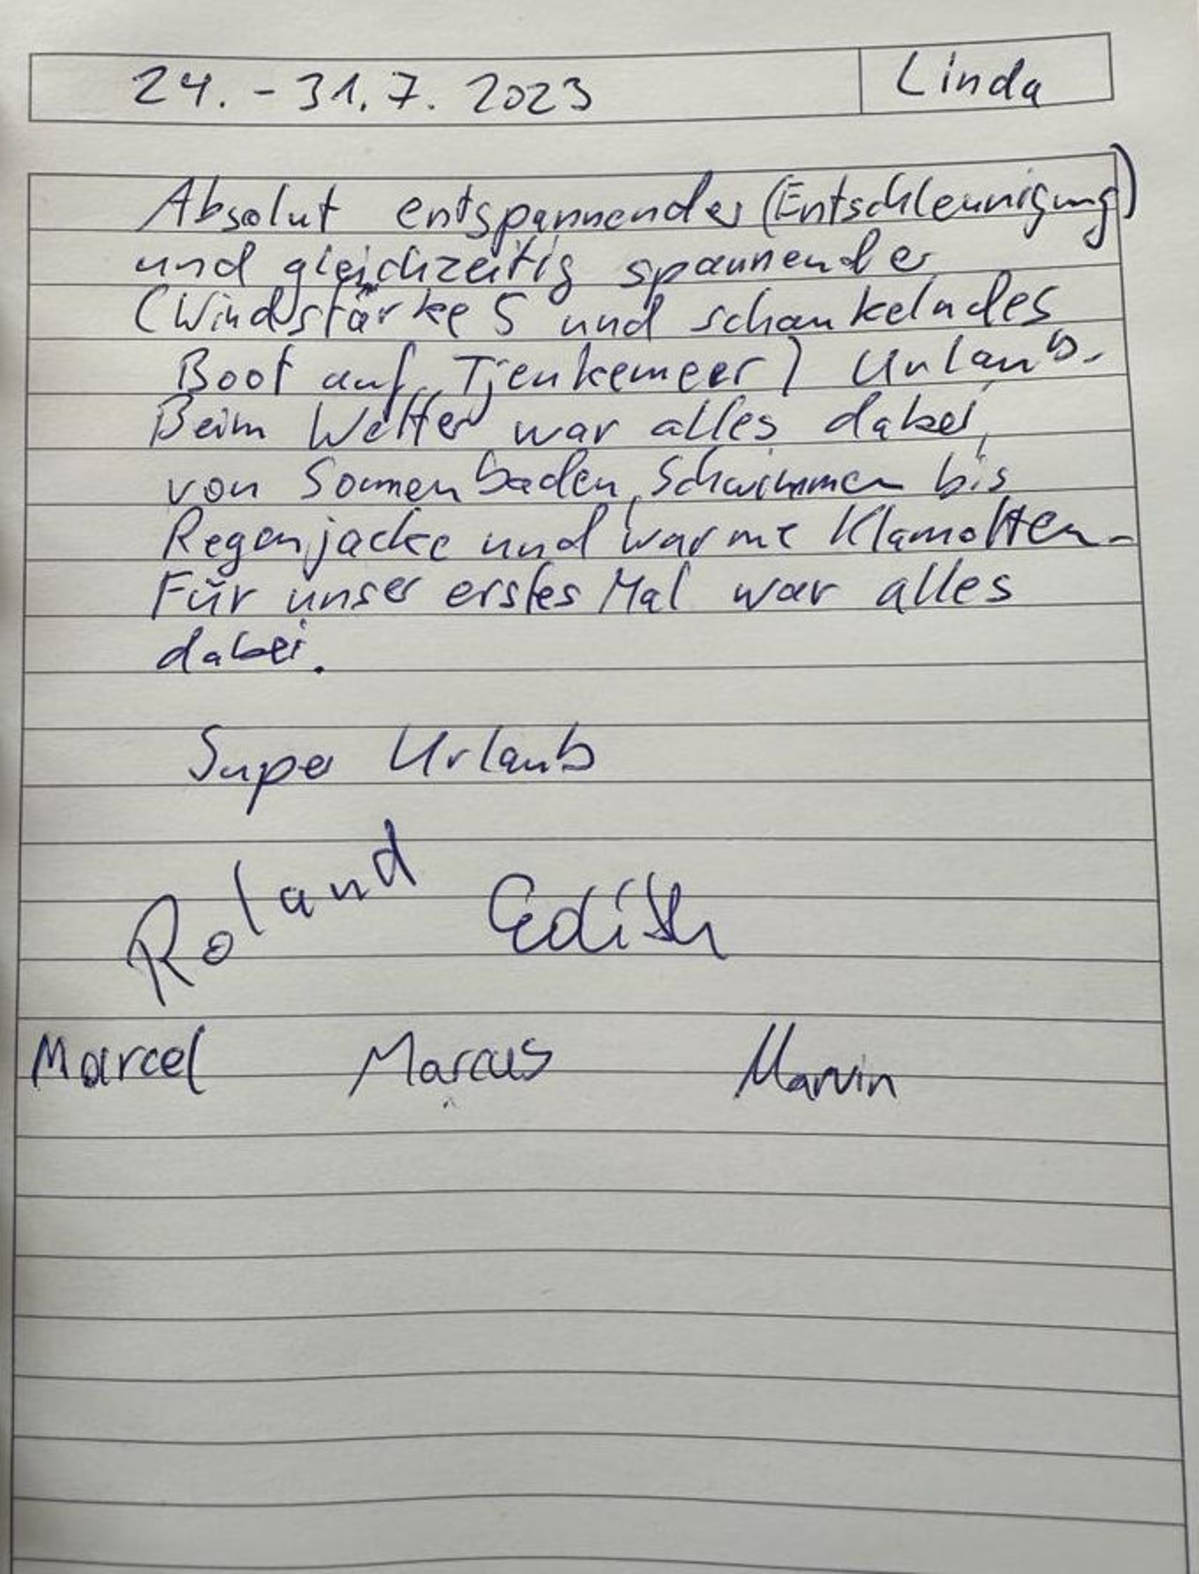 24. - 31.7. 2023 Linda
Absolut entspannender (Entschleunigung)
und gleichzeitig spannender
(Windstärke 5 und schaukelndes
Boot auf Tjeukemeer) Urlaub.
Beim Wetter war alles dabei,
von Sonnenbaden, Schwimmen bis
Regenjacke und warme Klamotten.
Für unser erstes Mal war alles
dabei.
Super Urlaub
Roland Edith
Marcel Marcus Marvin